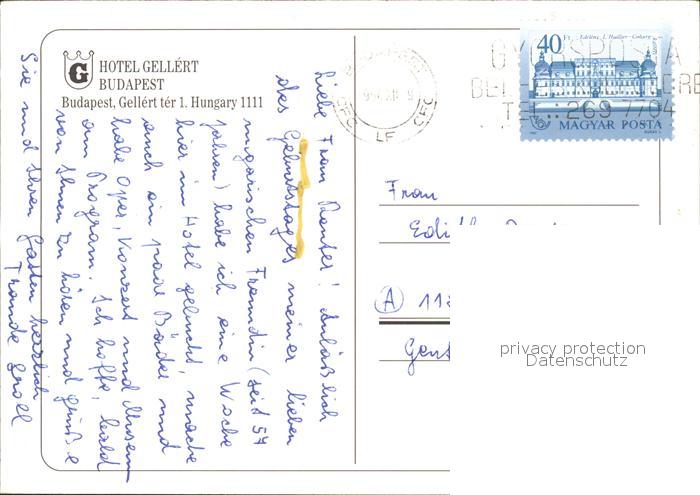 HOTEL GELLÉRT
BUDAPEST
Budapest, Gellért tér 1. Hungary 1111
Liebe Frau! Anläßlich
des Geburtstages meiner lieben
ungarischen Freundin (seit 57
Jahren) habe ich eine Woche
hier im Hotel gebucht, mache
auch ein paar Bäder und
habe Oper, Konzert und Museum
am Program. Ich hoffe, bald
von Ihnen zu hören und grüße
Sie und Ihren Gatten herzlich
40 Ft Edelény, L'Huillier-Coburg
MAGYAR POSTA
GYORSPOSTA
TEL.: 269 7704
CFC LF CFC
Frau
A 11
privacy protection
Datenschutz